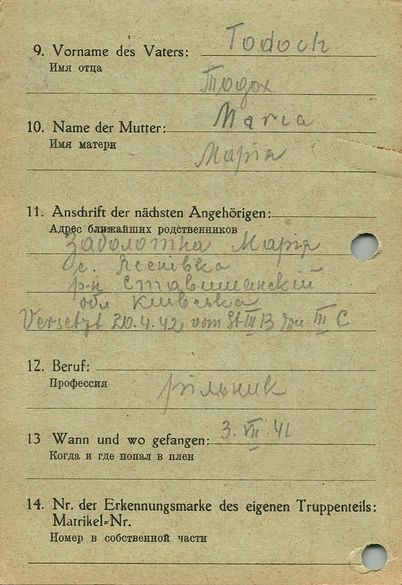 9. Vorname des Vaters: Todoch
Имя отца
Тодох
10. Name der Mutter: Maria
Имя матери
Марія
11. Anschrift der nächsten Angehörigen:
Адрес ближайших родственников
Заболотна Марія
с. Яснівка
р-н Ставищанскій
обл Київська
Versetzt 20.4.42 vom St III B zu III C
12. Beruf:
Профессия
рільник
13 Wann und wo gefangen: 3. VII. 41
Когда и где попал в плен
14. Nr. der Erkennungsmarke des eigenen Truppenteils:
Matrikel-Nr.
Номер в собственной части